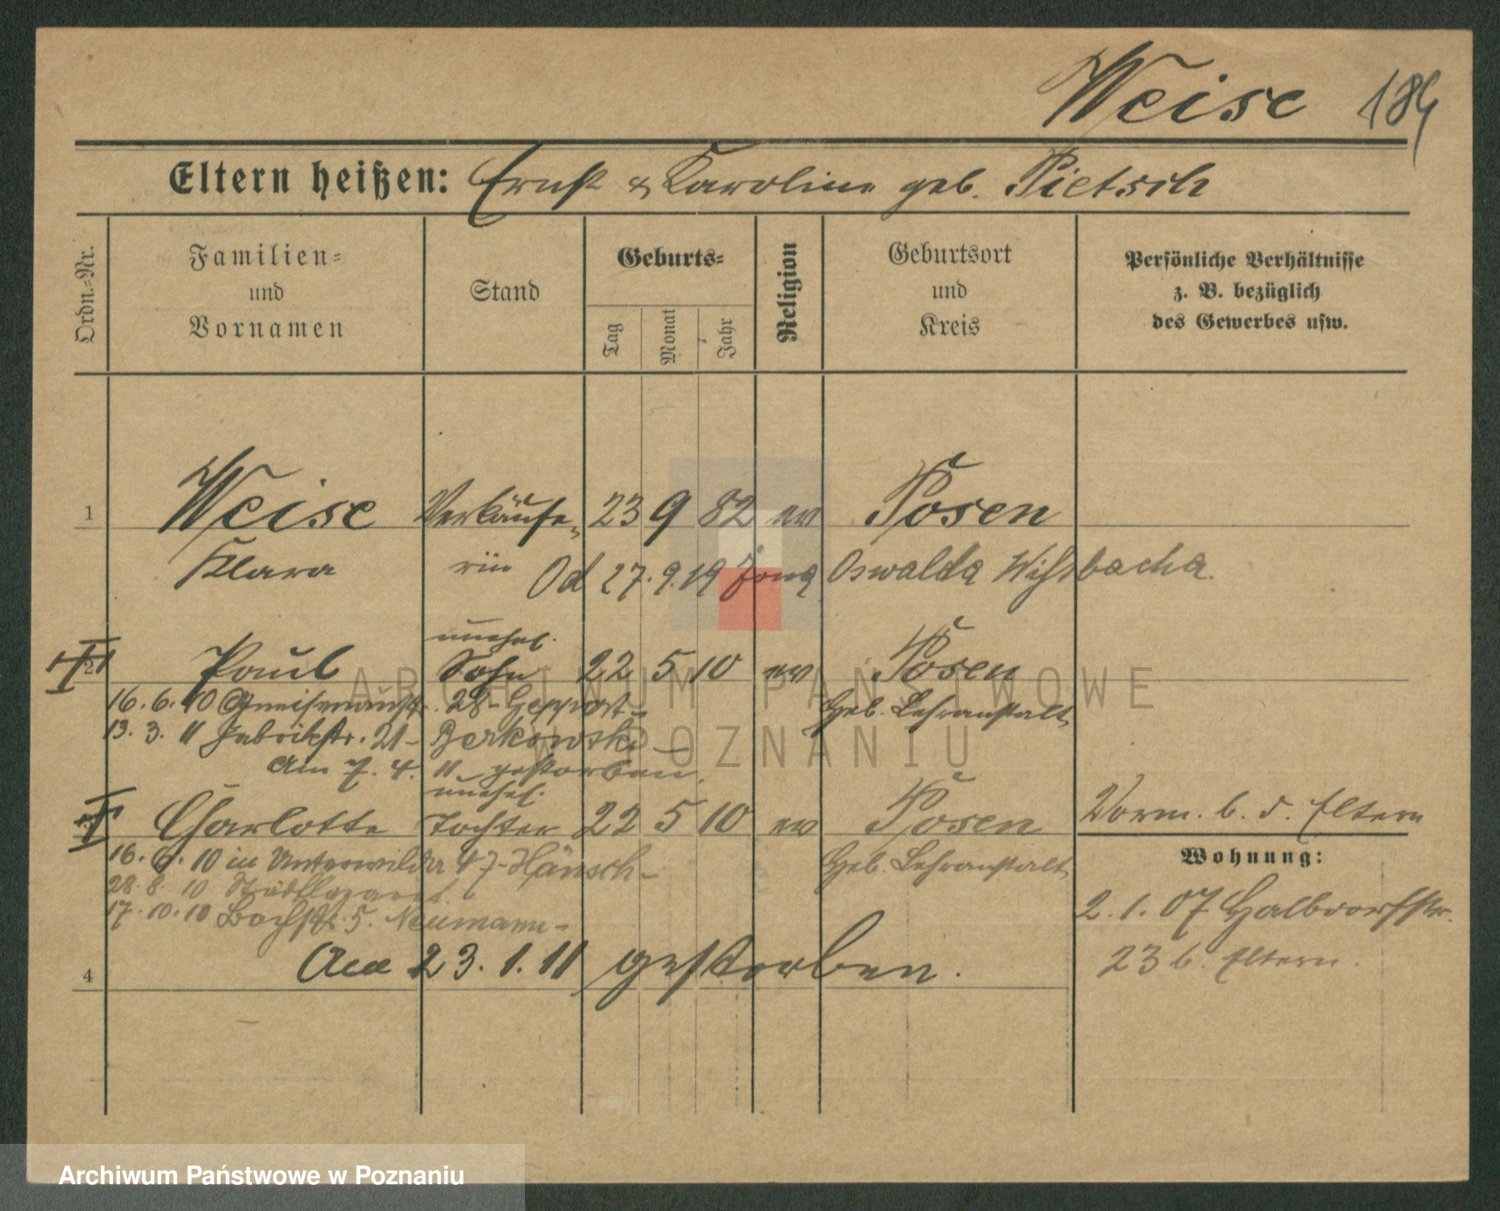 Weise 184
Eltern heißen: Ernst & Karoline geb. Pietsch
Ordn.-Nr.
Familien-
und
Vornamen
Stand
Geburts-
Tag
Monat
Jahr
Religion
Geburtsort
und
Kreis
Persönliche Verhältnisse
z. B. bezüglich
des Gewerbes usw.
1 Weise Verkäufe- 23 9 82 ev Posen
Klara rin Od 27.9.19 żona Oswalda
unehel.
2 Paul Sohn 22 5 10 ev Posen
16.6.10 Gneisenaustr. 28 - Geppert - Geb. Lehranstalt
13.3.11 Fabrikstr. 21 - Berkowski -
Am 7.4.11 gestorben.
unehel.
Charlotte Tochter 22 5 10 ev Posen
16.6.10 in Unterwilda 47 - Hänsch - Geb. Lehranstalt
28.8.10 Stadtlazarett
17.10.10 Bachstr. 5. Neumann -
4 Am 23.1.11 gestorben.
Vorm. b. d. Eltern
Wohnung:
2.1.07 Halbdorfstr.
23 b. Eltern.
ARCHIWUM PAŃSTWOWE
W POZNANIU
Archiwum Państwowe w Poznaniu